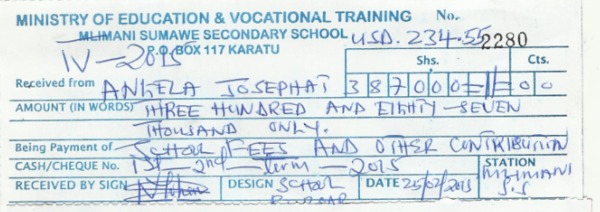 MINISTRY OF EDUCATION & VOCATIONAL TRAINING No.
MLIMANI SUMAWE SECONDARY SCHOOL USD. 234.55 2280
IV - 2015 P.O. BOX 117 KARATU
Shs. Cts.
Received from ANGELA JOSEPHAT 387000=// 00
AMOUNT (IN WORDS) THREE HUNDRED AND EIGHTY-SEVEN
THOUSAND ONLY.
Being Payment of SCHOOL FEES AND OTHER CONTRIBUTION
CASH/CHEQUE No. 1st - 2nd - Term - 2015 STATION
RECEIVED BY SIGN DESIGN SCHOOL DATE 25/02/2015 MLIMANI
BURSAR S.S